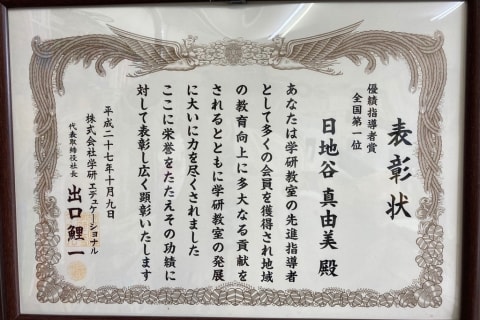 表彰状
優績指導者賞
全国第一位
日地谷 真由美 殿
あなたは学研教室の先進指導者
として多くの会員を獲得され地域
の教育向上に多大なる貢献を
されるとともに学研教室の発展
に大いに力を尽くされました
ここに栄誉をたたえその功績に
対して表彰し広く顕彰いたします
平成二十七年十月九日
株式会社学研エデュケーショナル
代表取締役社長 出口鯉一